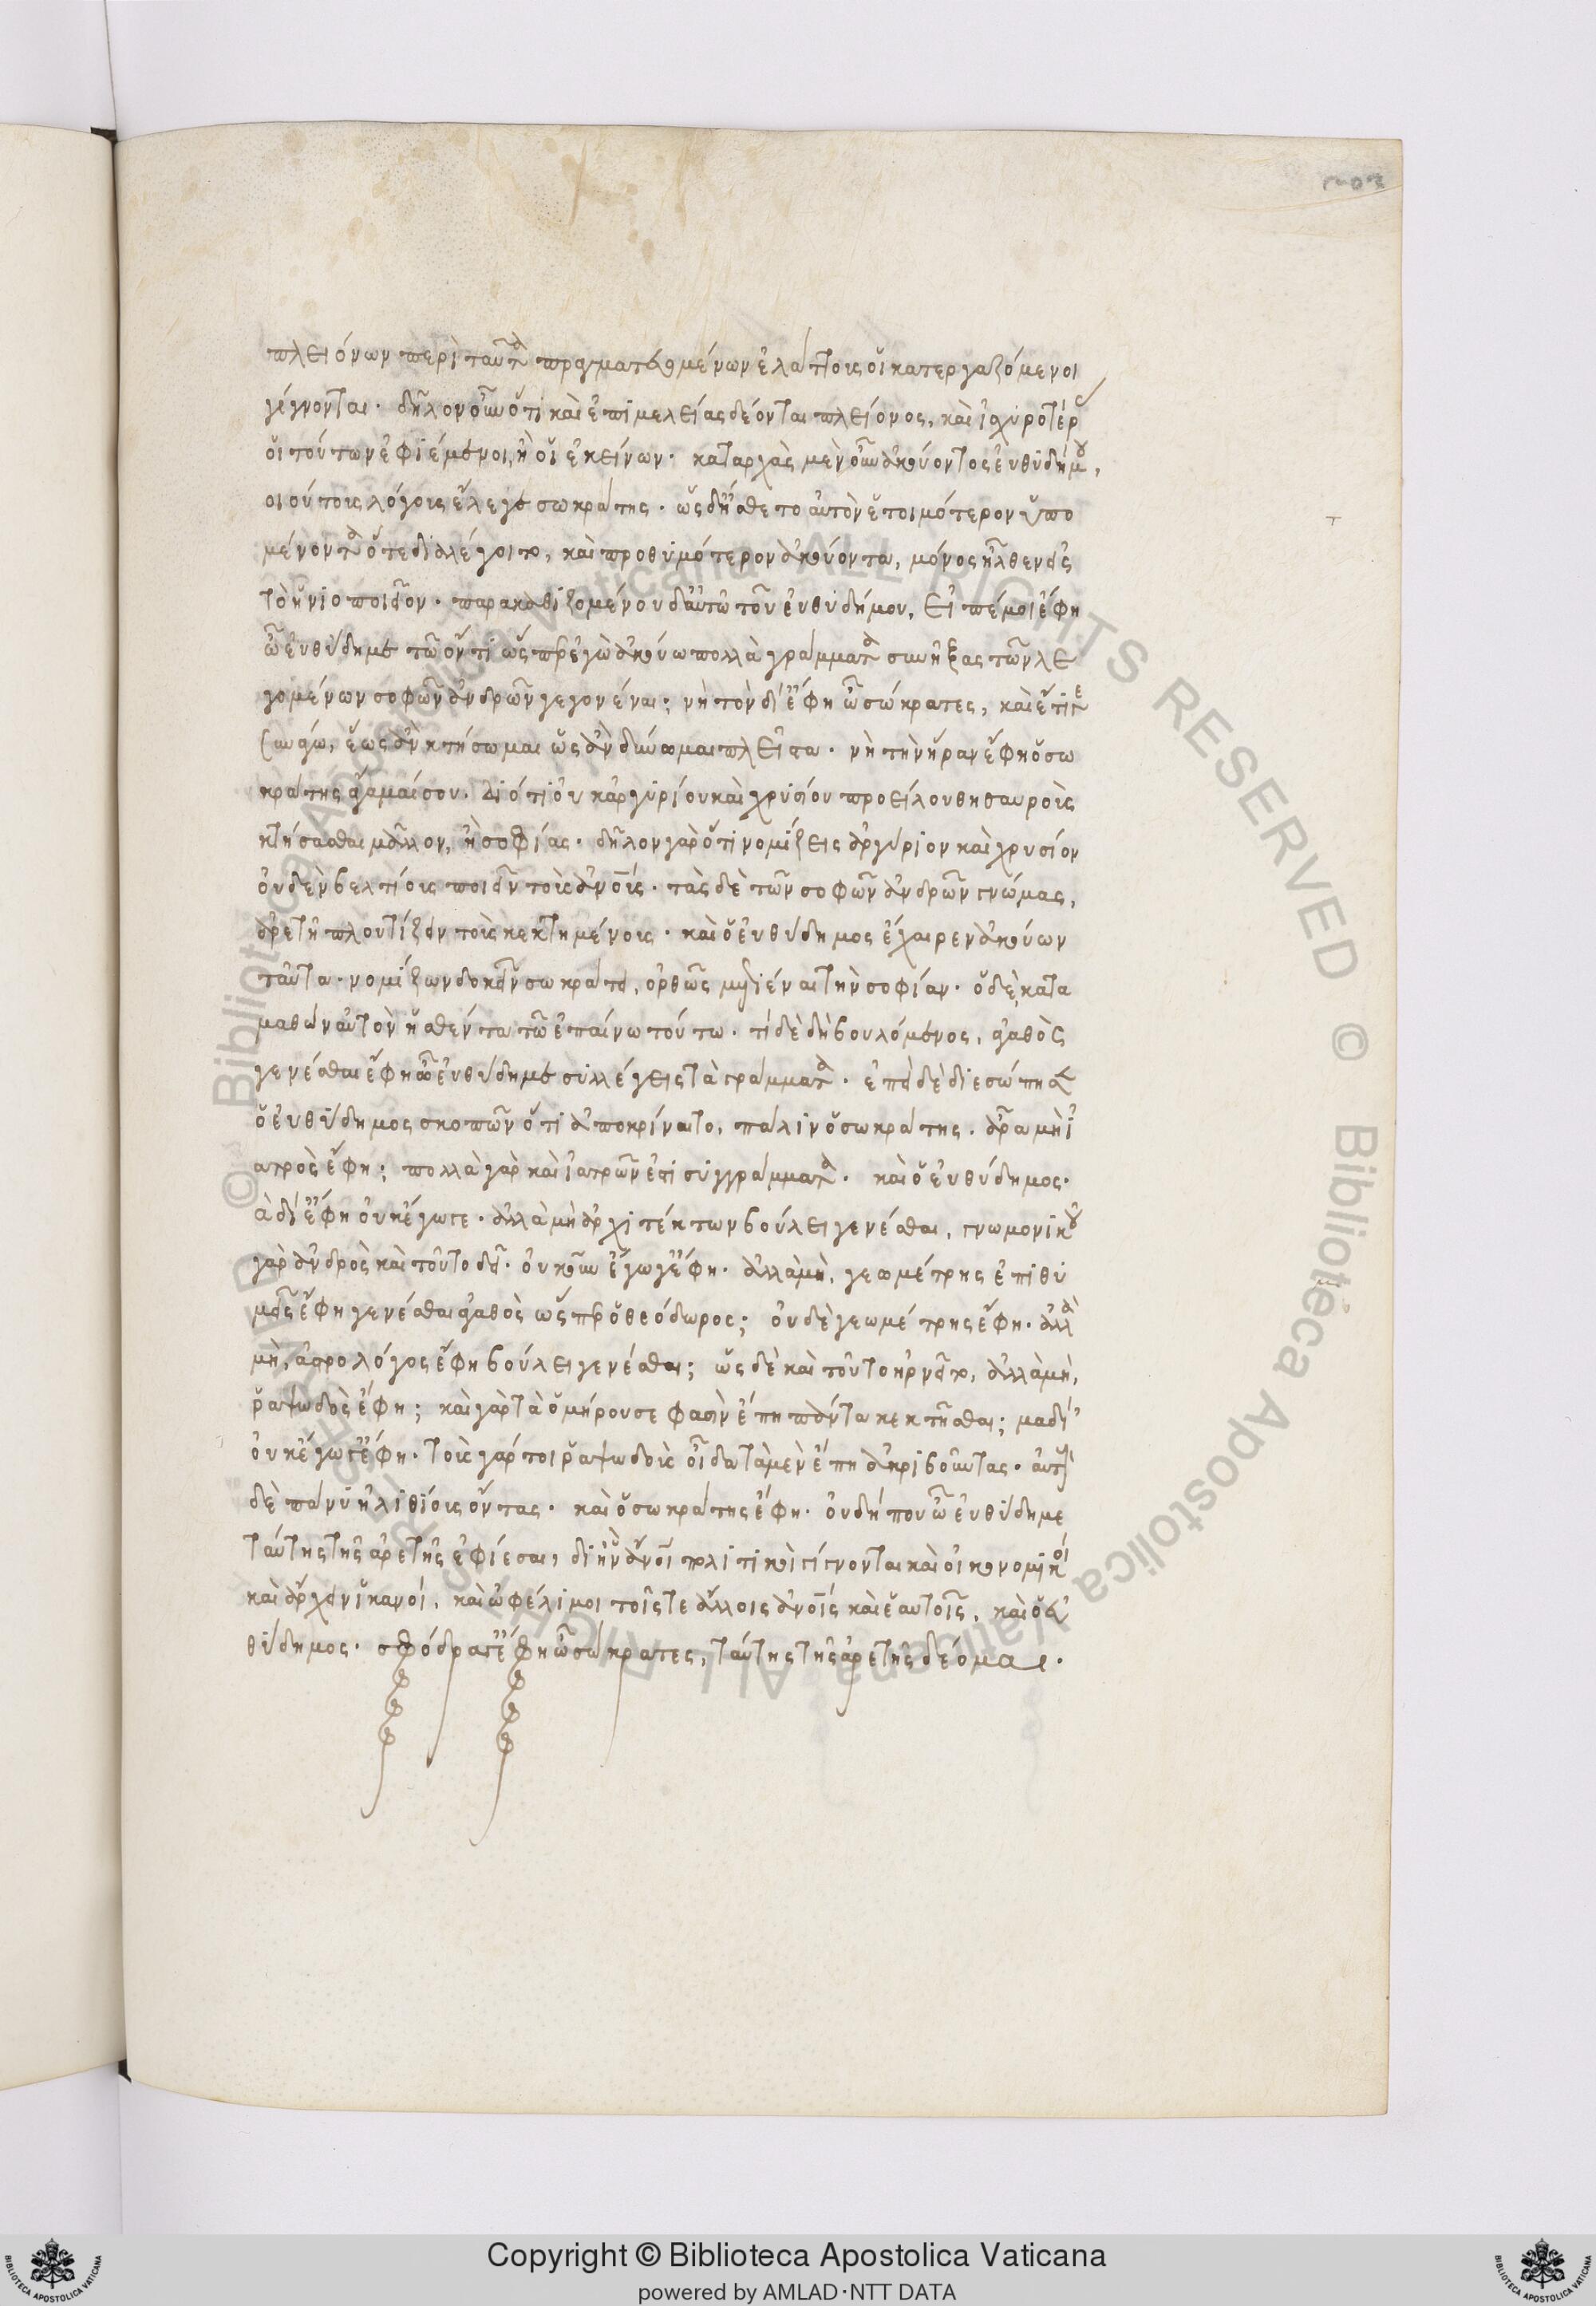 πλειόνων περὶ ταῦτα πραγματευομένων ἐλάττους οἱ κατεργαζόμενοι
γίγνονται· δῆλον οὖν ὅτι καὶ ἐπιμελείας δέονται πλείονος, καὶ ἰσχυροτέρας
οἱ τούτων ἐφιέμενοι, ἢ οἱ ἐκείνων· καταρχὰς μὲν οὖν ἀκούοντος εὐθυδήμου,
τοιούτους λόγους ἔλεγε σωκράτης· ὡς δ' ᾔσθετο αὐτὸν ἑτοιμότερον ὑπο
μένοντα ὅτε διαλέγοιτο, καὶ προθυμότερον ἀκούοντα, μόνος ἦλθεν εἰς
τὸ ἡνιοποιεῖον· παρακαθιζομένου δ' αὐτῶ τοῦ εὐθυδήμου, εἰπέ μοι ἔφη
ὦ εὐθύδημε τῶ ὄντι ὥσπερ ἐγὼ ἀκούω πολλὰ γράμματα συνῆξας τῶν λε
γομένων σοφῶν ἀνδρῶν γεγονέναι; νὴ τὸν δί' ἔφη ὦ σώκρατες, καὶ ἔτι γε
συνάγω, ἕως ἂν κτήσωμαι ὡς ἂν δύνωμαι πλεῖστα· νὴ τὴν ἥραν ἔφη ὁ σω
κράτης ἄγαμαί σου. διότι οὐκ ἀργυρίου καὶ χρυσίου προείλου θησαυροὺς
κτήσασθαι μᾶλλον, ἢ σοφίας· δῆλον γὰρ ὅτι νομίζεις ἀργύριον καὶ χρυσίον
οὐδὲν βελτίους ποιεῖν τοὺς ἀν̅ους· τὰς δὲ τῶν σοφῶν ἀνδρῶν γνώμας,
ἀρετῆ πλουτίζειν τοὺς κεκτημένους· καὶ ὁ εὐθύδημος ἔχαιρεν ἀκούων
ταῦτα· νομίζων δοκεῖν σωκράτει, ὀρθῶς μετιέναι τὴν σοφίαν· ὁ δὲ, κατα
μαθὼν αὐτὸν ἡσθέντα τῶ ἐπαίνω τούτω· τί δὲ δὴ βουλόμενος, ἀγαθὸς
γενέσθαι ἔφη ὦ εὐθύδημε συλλέγεις τὰ γράμματα· ἐπεὶ δὲ διεσώπησεν
ὁ εὐθύδημος σκοπῶν ὅτι ἀποκρίναιτο, πάλιν ὁ σωκράτης. ἆρα μὴ ἰ
ατρὸς ἔφη; πολλὰ γὰρ καὶ ἰατρῶν ἐστὶ συγγράμματα· καὶ ὁ εὐθύδημος·
μὰ δί' ἔφη οὐκ ἔγωγε· ἀλλὰ μὴ ἀρχιτέκτων βούλει γενέσθαι, γνωμονικοῦ
γὰρ ἀνδρὸς καὶ τοῦτο δεῖ· οὔκουν ἔγωγ' ἔφη· ἀλλὰ μὴ, γεωμέτρης ἐπιθυ
μεῖς ἔφη γενέσθαι ἀγαθὸς ὥσπερ ὁ θεόδωρος; οὐδὲ γεωμέτρης ἔφη· ἀλλὰ
μὴ, ἀστρολόγος ἔφη βούλει γενέσθαι; ὡς δὲ καὶ τοῦτο ἠρνεῖτο, ἀλλὰ μὴ,
ῥαψωδὸς ἔφη; καὶ γὰρ τὰ ὁμήρου σε φασὶν ἔπη πάντα κεκτῆσθαι; μὰ δί'
οὐκ ἔγωγ' ἔφη· τοὺς γάρ τοι ῥαψωδοὺς οἶδα τὰ μὲν ἔπη ἀκριβοῦντας· αὐτοὺς
δὲ πάνυ ἠλιθίους ὄντας· καὶ ὁ σωκράτης ἔφη· οὐ δήπου ὦ εὐθύδημε
ταύτης τῆς ἀρετῆς ἐφίεσαι, δι' ἣν ἄν̅οι πολιτικοὶ γίγνονται καὶ οἰκονομικοί
καὶ ἄρχειν ἱκανοί, καὶ ὠφέλιμοι τοῖς τε ἄλλοις ἀν̅οις καὶ ἑαυτοῖς, καὶ ὁ εὐ
θύδημος· σφόδρα γ' ἔφη ὦ σώκρατες, ταύτης τῆς ἀρετῆς δέομαι·
© Biblioteca Apostolica Vaticana ALL RIGHTS RESERVED
Copyright © Biblioteca Apostolica Vaticana
powered by AMLAD·NTT DATA